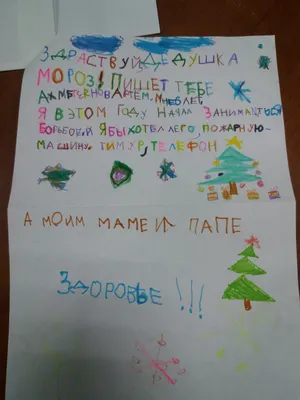 ЗДРАСТВУЙ ДЕДУШКА
МОРОЗ! ПИШЕТ ТЕБЕ
АРТЁМ. МНЕ 6 ЛЕТ,
Я В ЭТОМ ГОДУ НАЧАЛ ЗАНИМАТЬСЯ
БОРЬБОЙ. Я БЫ ХОТЕЛ ЛЕГО, ПОЖАРНУЮ-
МАШИНУ, ТИМУР, ТЕЛЕФОН
А МОИМ МАМЕ И ПАПЕ
ЗДОРОВЬЕ !!!